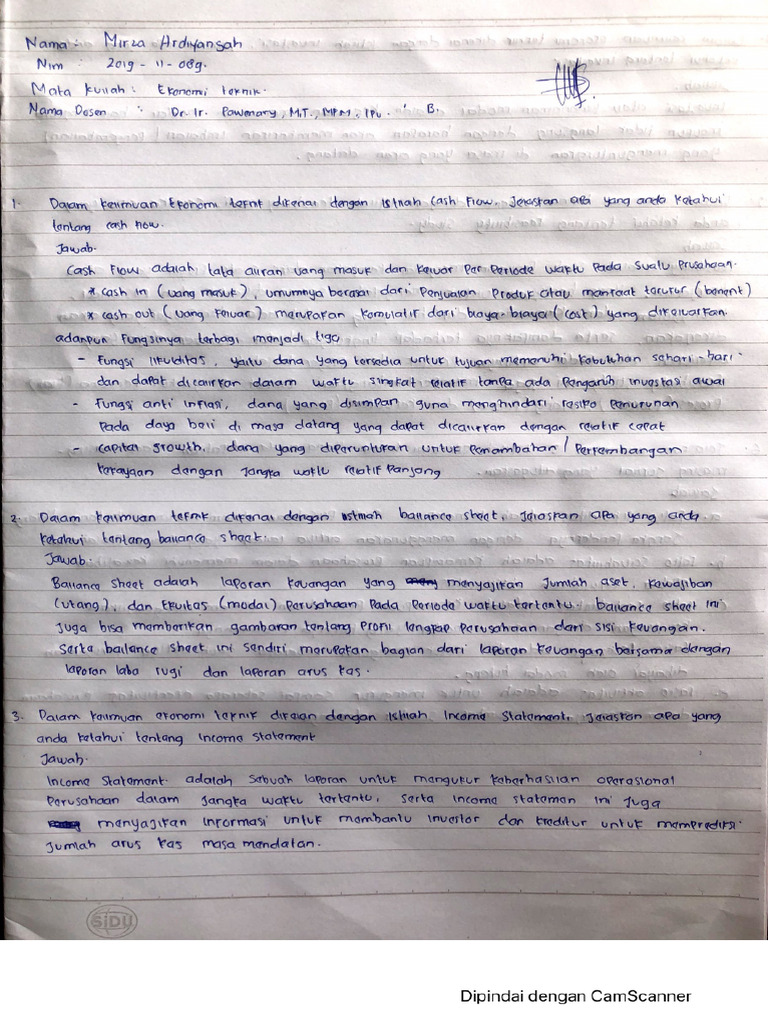 Nama : Mirza Ardiyansah
Nim : 2019-11-089.
Mata Kuliah : Ekonomi teknik.
Nama Dosen : Dr. Ir. Pawenary, M.T., MPM, IPU. B.
1. Dalam keilmuan Ekonomi teknik dikenal dengan istilah Cash Flow. Jelaskan apa yang anda ketahui
tentang cash flow.
Jawab.
Cash Flow adalah tata aliran uang masuk dan keluar Per Periode waktu Pada suatu Prusahaan.
* cash in (uang masuk), umumnya berasal dari Penjualan Produk atau manfaat terukur (benefit)
* cash out (uang keluar) merupakan komulatif dari biaya-biaya (cost) yang dikeluarkan.
adapun Fungsinya terbagi menjadi tiga
- Fungsi likuditas, yaitu dana yang tersedia untuk tujuan memenuhi kebutuhan sehari-hari
dan dapat dicairkan dalam waktu singkat relatif tanpa ada Pengaruh investasi awal
- Fungsi anti inflasi, dana yang disimpan guna menghindari resiko Penurunan
Pada daya beli di masa datang yang dapat dicairkan dengan relatif cepat
- capital growth. dana yang diperuntukan untuk Penambahan / Perkembangan
kekayaan dengan Jangka waktu relatif Panjang
2. Dalam keilmuan teknik dikenal dengan istilah ballance sheet, Jelaskan apa yang anda
ketahui tentang ballance sheet.
Jawab.
Ballance Sheet adalah laporan keuangan yang menyajikan Jumlah aset, kewajiban
(utang), dan Ekuitas (modal) Perusahaan Pada Periode waktu tertentu. ballance sheet ini
Juga bisa memberikan gambaran tentang Profil lengkap Perusahaan dari sisi keuangan.
Serta ballance sheet ini sendiri merupakan bagian dari laporan keuangan bersama dengan
laporan laba rugi dan laporan arus kas.
3. Dalam keilmuan ekonomi teknik dikelan dengan istilah Income Statement, Jelaskan apa yang
anda ketahui tentang income statement
Jawab.
Income Statement adalah sebuah laporan untuk mengukur keberhasilan operasional
Perusahaan dalam Jangka waktu tertentu, serta income statemen ini Juga
menyajikan informasi untuk membantu investor dan kreditur untuk memprediksi
Jumlah arus kas masa mendatan.
SiDU
Dipindai dengan CamScanner